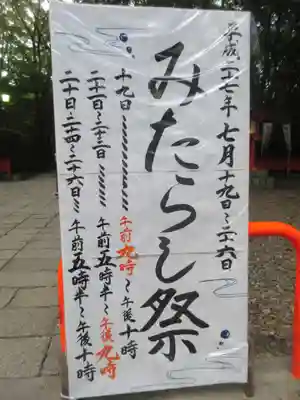 平成二十七年七月十九日～二十六日
みたらし祭
十九日〜午前九時〜午後十時
二十一日〜二十三日〜午前五時半〜午後九時
二十日・二十四〜二十六日〜午前五時半〜午後十時